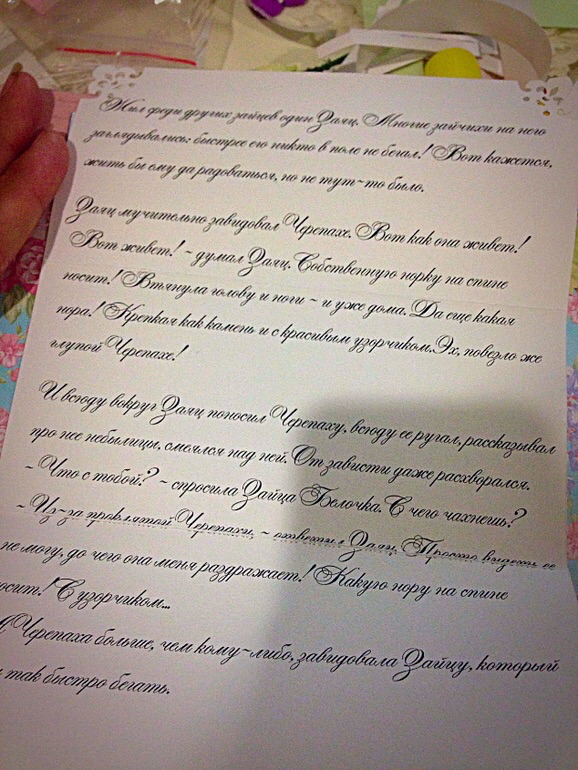 Жил среди других зайцев один Заяц. Многие зайчихи на него
заглядывались: быстрее его никто в поле не бегал! Вот кажется,
жить бы ему да радоваться, но не тут~то было.
Заяц мучительно завидовал Черепахе. Вот как она живет!
Вот живет! ~ думал Заяц. Собственную норку на спине
носит! Втянула голову и ноги ~ и уже дома. Да еще какая
нора! Крепкая как камень и с красивым узорчиком. Эх, повезло же
глупой Черепахе!
И всюду вокруг Заяц поносил Черепаху, всюду ее ругал, рассказывал
про нее небылицы, смеялся над ней. От зависти даже расхворался.
~ Что с тобой? ~ спросила Зайца Белочка. С чего чахнешь?
~ Из~за проклятой Черепахи, ~ ответил Заяц. Просто видеть ее
не могу, до чего она меня раздражает! Какую нору на спине
осит! С узорчиком...
Черепаха больше, чем кому~либо, завидовала Зайцу, который
так быстро бегать.